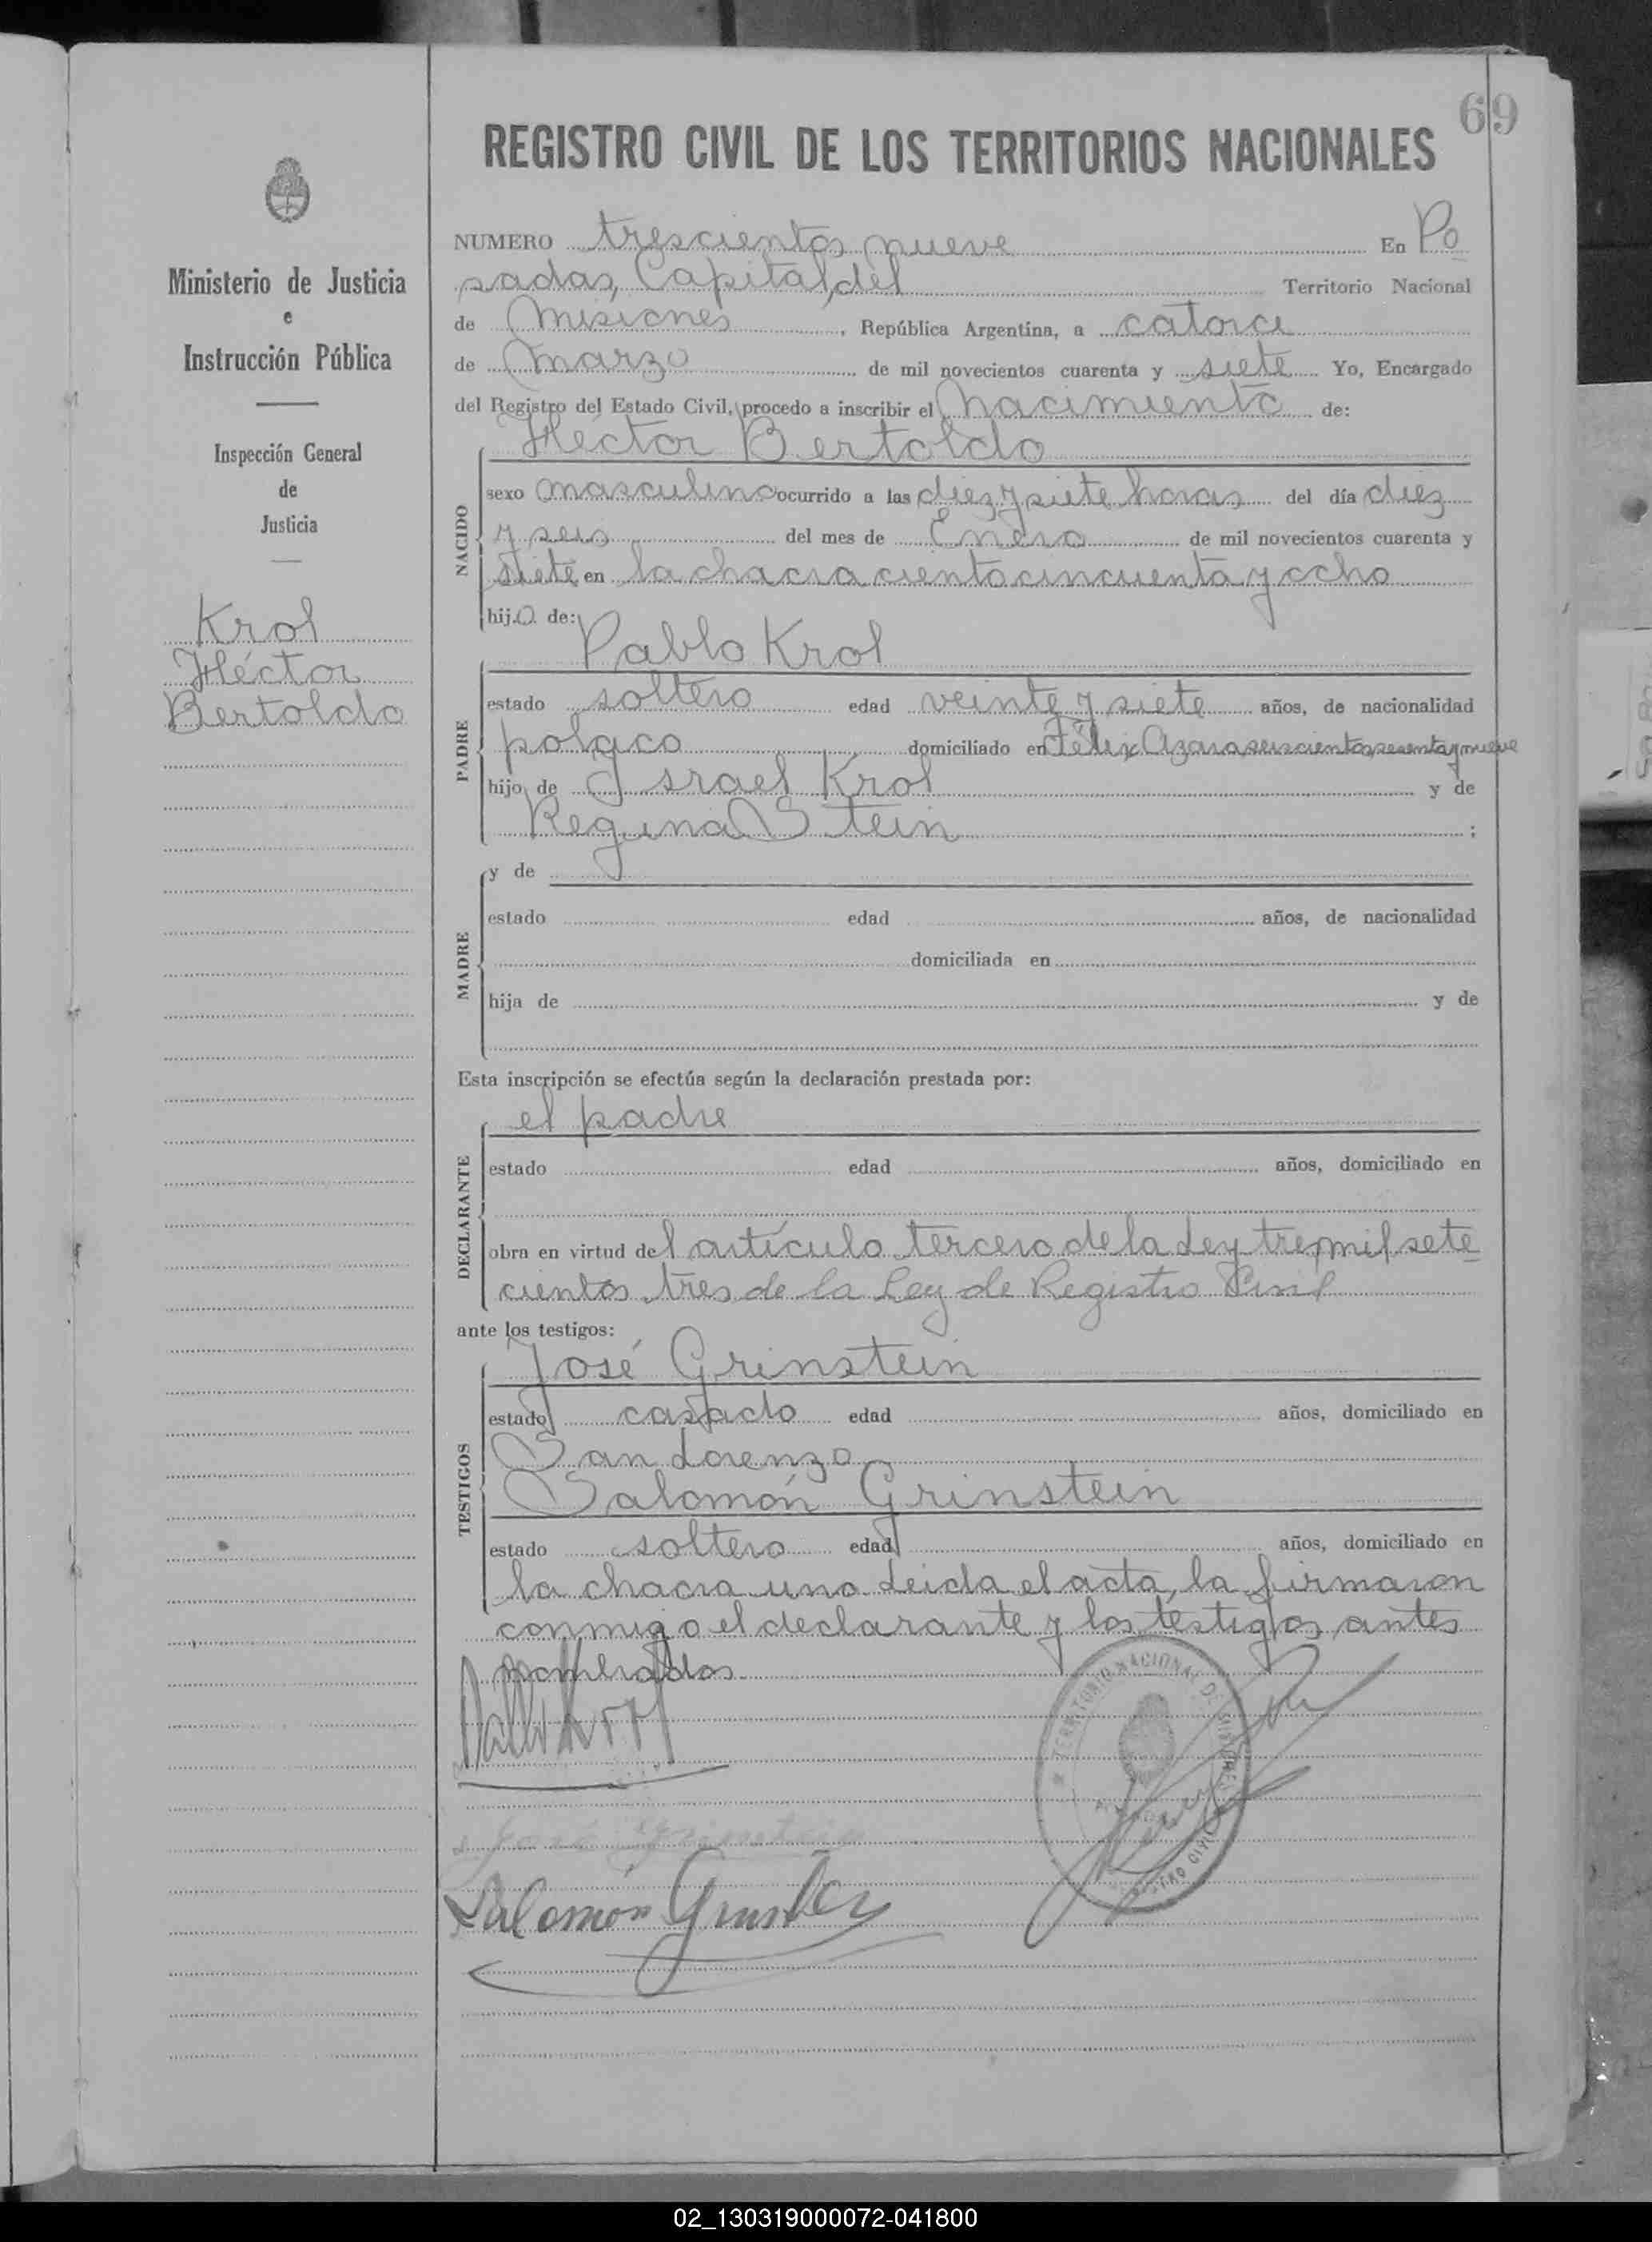 69
REGISTRO CIVIL DE LOS TERRITORIOS NACIONALES
Ministerio de Justicia
e
Instrucción Pública
Inspección General
de
Justicia
Krol
Héctor
Bertoldo
NUMERO trescientos nueve En Po
sadas, Capital del Territorio Nacional
de Misiones, República Argentina, a catorce
de Marzo de mil novecientos cuarenta y siete Yo, Encargado
del Registro del Estado Civil, procedo a inscribir el Nacimiento de:
NACIDO
Héctor Bertoldo
sexo Masculino ocurrido a las diez y siete horas del día diez
y seis del mes de Enero de mil novecientos cuarenta y
siete en la chacra ciento cincuenta y ocho
hijo de:
PADRE
Pablo Krol
estado soltero edad veinte y siete años, de nacionalidad
polaco domiciliado en Félix Azara seiscientos sesenta y nueve
hijo de Israel Krol y de
Regina Stein ;
MADRE
y de
estado edad años, de nacionalidad
domiciliada en
hija de y de
Esta inscripción se efectúa según la declaración prestada por:
DECLARANTE
el padre
estado edad años, domiciliado en
obra en virtud del artículo tercero de la Ley tres mil sete
cientos tres de la Ley de Registro Civil
ante los testigos:
TESTIGOS
José Grinstein
estado casado edad años, domiciliado en
San Lorenzo
Salomón Grinstein
estado soltero edad años, domiciliado en
la chacra uno Leida el acta, la firmaron
conmigo el declarante y los testigos antes
nombrados
Pablo Krol
TERRITORIO NACIONAL DE MISIONES
José Grinstein
Salomón Grinstein
02_130319000072-041800